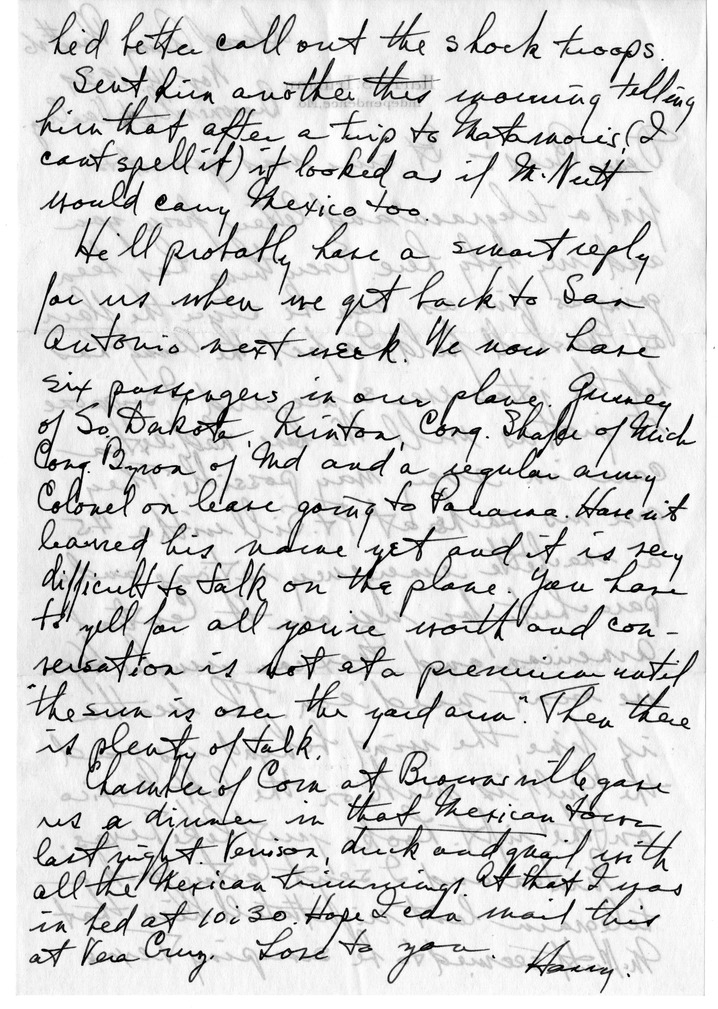 he'd better call out the shock troops.
Sent him another this morning telling
him that after a trip to Matamoris (I
cant spell it) it looked as if McNutt
would carry Mexico too.
He'll probably have a smart reply
for us when we get back to San
Antonio next week. We now have
six passengers in our plane. Gurney
of So. Dakota, Minton, Cong. Shafer of Mich
Cong. Byron of Md and a regular army
Colonel on leave going to Panama. Haven't
learned his name yet and it is very
difficult to talk on the plane. You have
to yell for all you're worth and con-
versation is not at a premium until
"the sun is over the yard arm". Then there
is plenty of talk.
Chamber of Com at Brownsville gave
us a dinner in that Mexican town
last night. Venison, duck and quail with
all the Mexican trimmings. At that I was
in bed at 10:30. Hope I can mail this
at Vera Cruz. Love to you.
Harry.